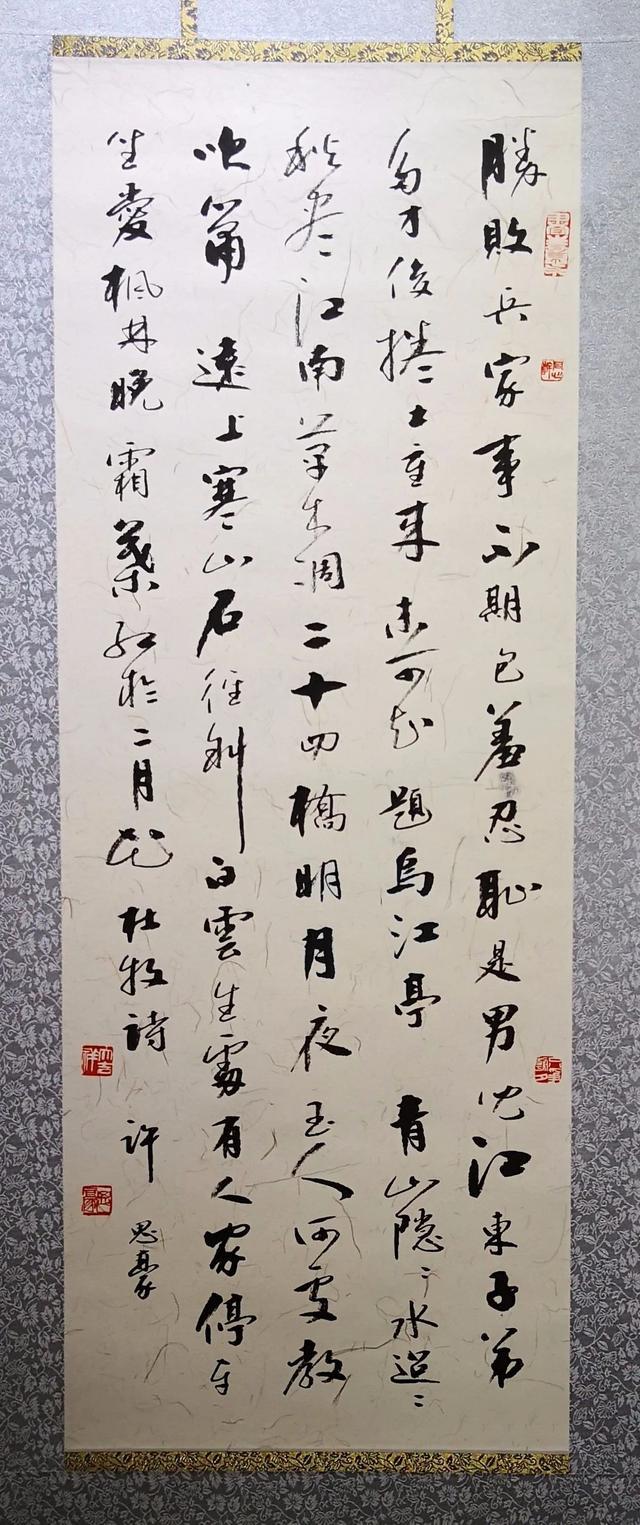 勝敗兵家事不期包羞忍恥是男兒江東子弟
多才俊捲土重來未可知 題烏江亭 青山隱〻水迢〻
秋尽江南草未凋二十四橋明月夜玉人何處教
吹簫 遠上寒山石徑斜 白雲生處有人家停車
坐愛楓林晚 霜葉紅於二月花 杜牧詩 許思豪
大吉祥